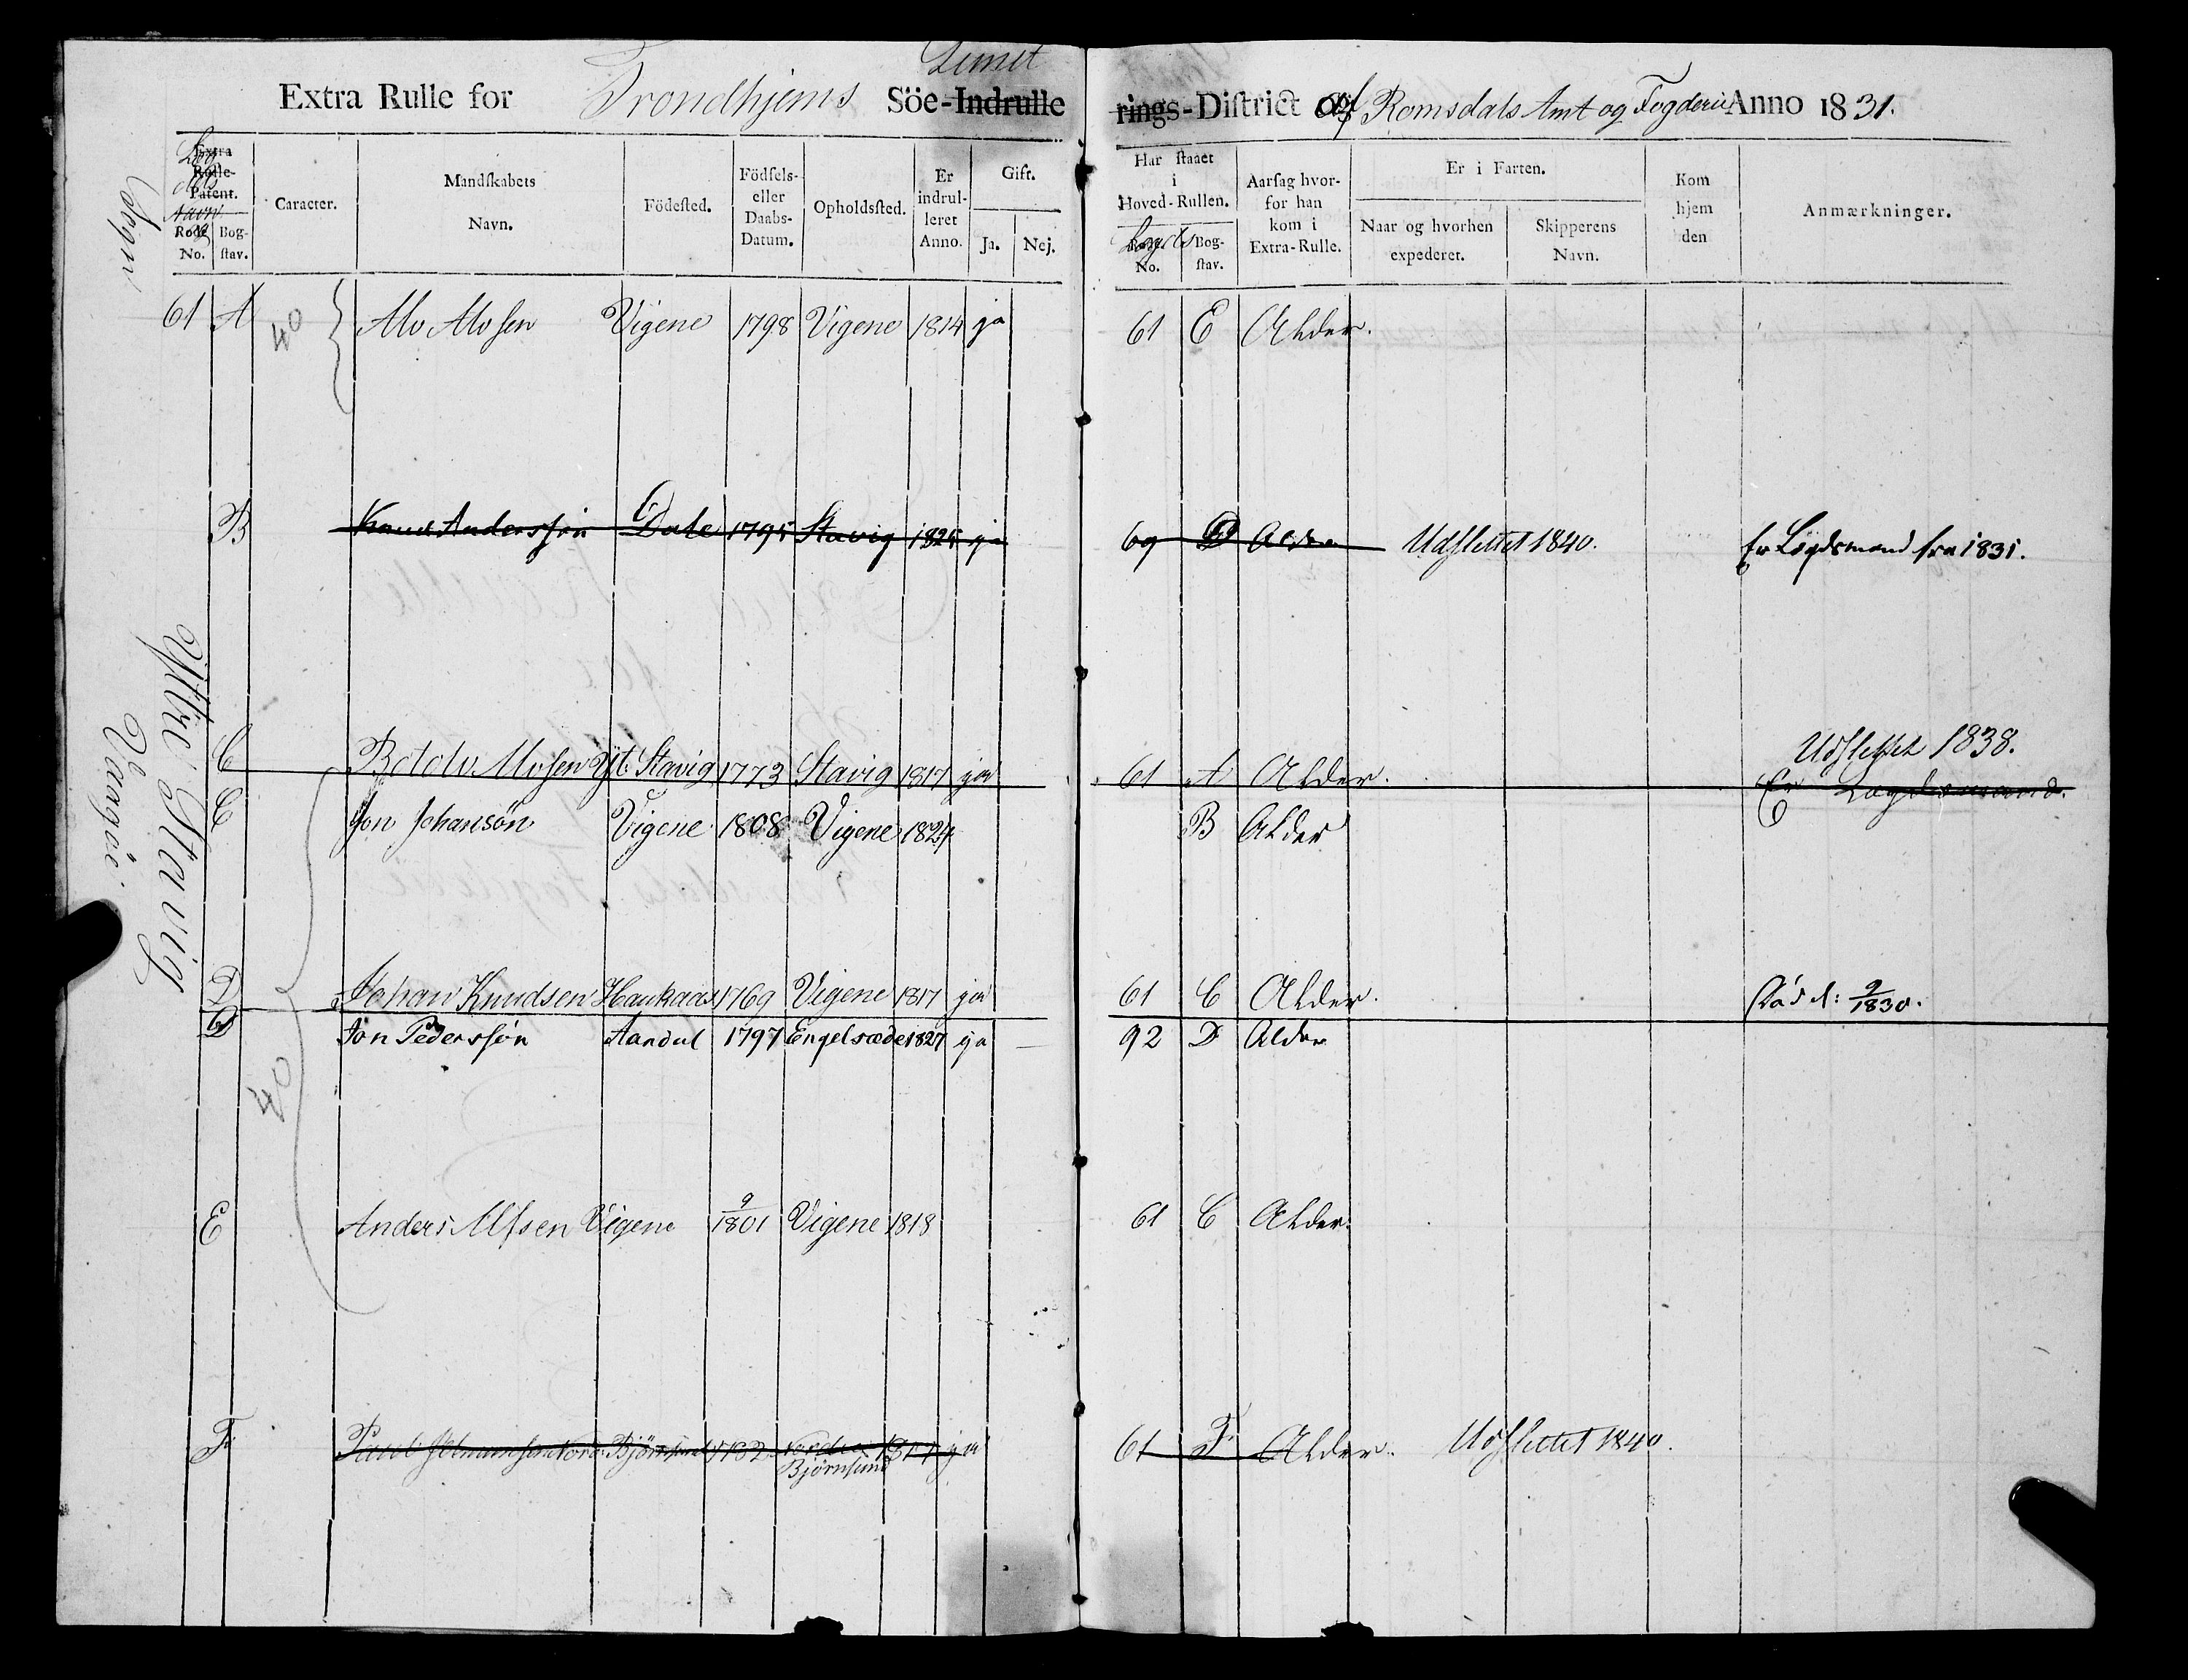 Extra Rulle for Trondhjems Söe-Indrulle Limit rings-District af Romsdals Amt og Fogderie Anno 1831.
Extra Rolle-Patent. Caracter. Mandskabets Navn. Födested. Födsels- eller Daabs-Datum. Opholdssted. Er indrulleret Anno. Gift.
Rode No. Bogstav. Ja. Nej.
Har staaet i Hoved-Rullen. Aarsag hvorfor han kom i Extra-Rulle. Er i Farten. Kom hjem den Anmærkninger.
Lægds No. Bogstav. Naar og hvorhen expederet. Skipperens Navn.
Sogn
61 A 40 Alv Alvsen Vigene 1798 Vigene 1814 ja 61 E Alder.
B Knud Anderssön Dale 1795 Stavig 1825 ja 69 D Alder Udslettet 1840. Er Lægdsmand fra 1831.
Yttre Stavig
Vaagøe
Udslettet 1838.
C Botolv Alvsen Yt: Stavig 1773 Stavig 1817 ja 61 A Alder. Er Lægdsmand.
C Jon Johansøn Vigene 1808 Vigene 1824 B Alder
D Johan Knudsen Haukaas 1769 Vigene 1817 ja 61 C Alder. Død d: 9/1830.
D Jon Pederssön Aandal 1797 Engelsæde 1827 ja 92 D Alder
40
E Anders Alfsen Vigene 9/1801 Vigene 1818 61 C Alder.
F Paul Nord: Björnsund 1782 Nordre Björnsund 1817 ja 61 F. Alder. Udslettet 1840.